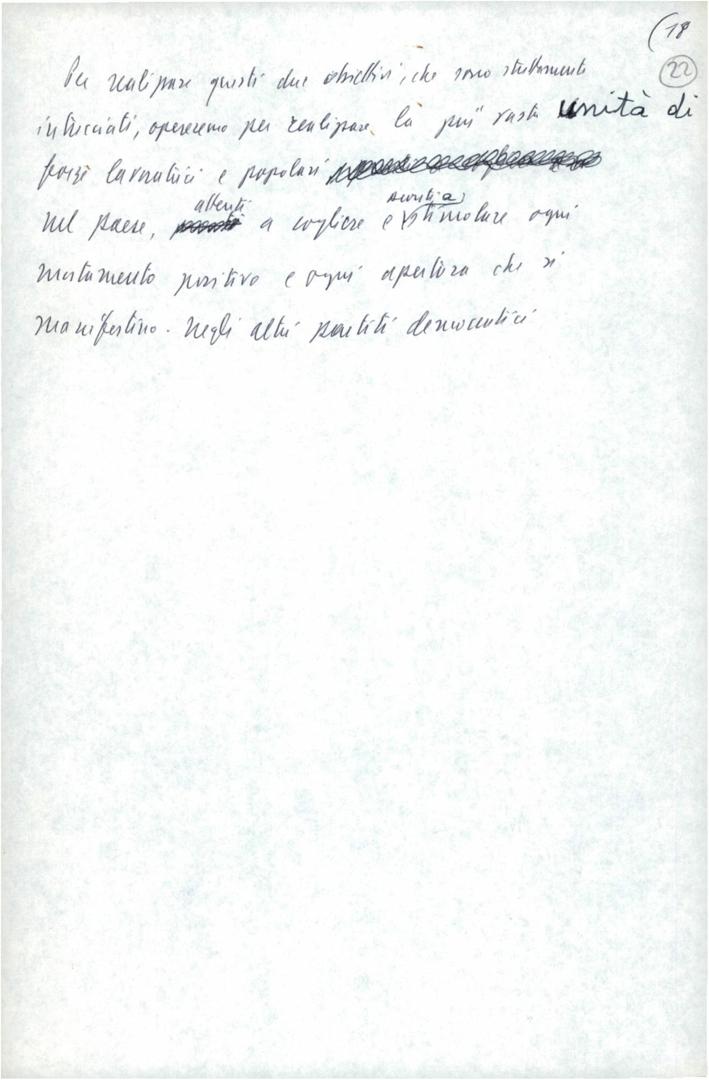 (18
22
Per realizzare questi due obiettivi, che sono strettamente
intrecciati, opereremo per realizzare la più vasta unità di
forze lavoratrici e popolari
nel paese, attenti a cogliere e stimolare ogni
mutamento positivo e ogni apertura che si
manifestino. negli altri partiti democratici